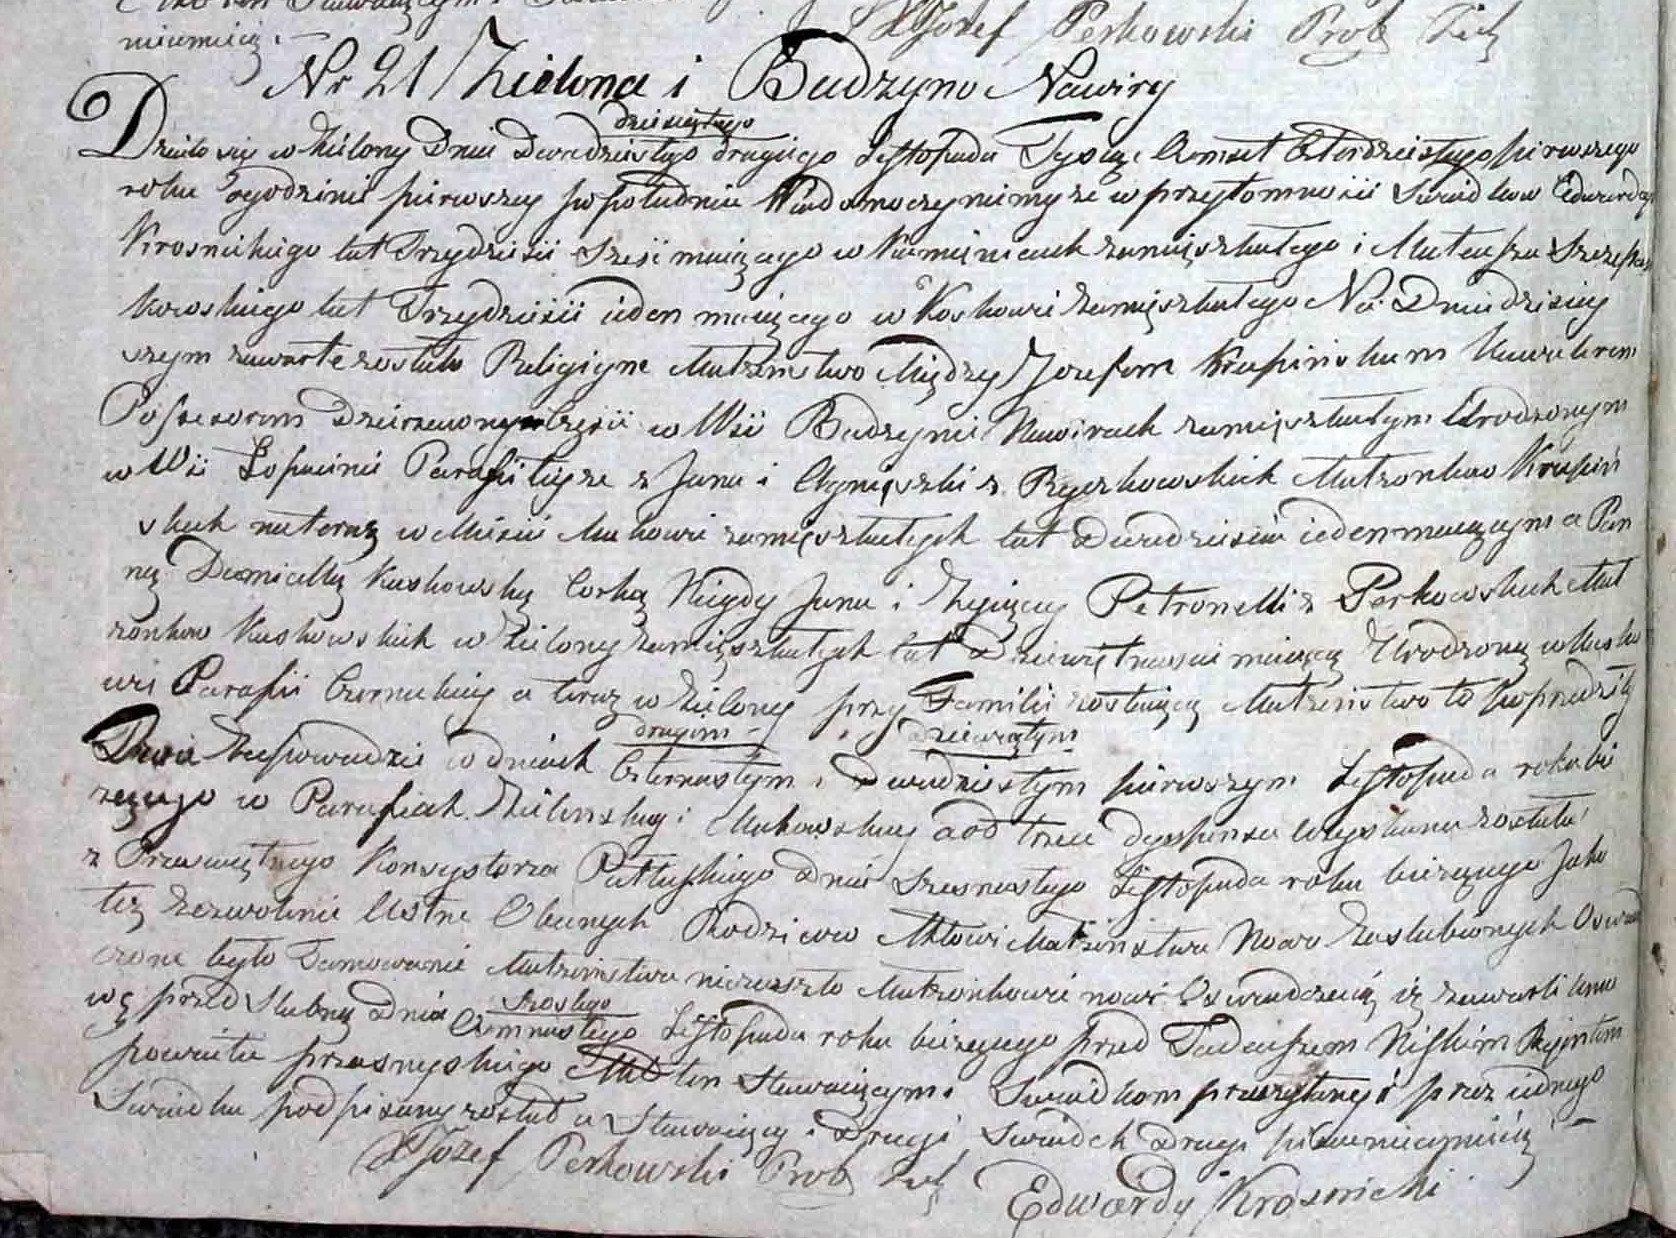 niemieią. —
X Jozef Perkowski Prob Ziel
Nr 21 Zielona i Budzyno Nawiry
dziesiątego
Działo się w Zielony Dnia Dwudziestego drugiego Listopada Tysiąc Osmset Czterdziestego pierwszego
roku o godzinie pierwszey popołudniu Wiadomo czyniemy ze w przytomności Swiadkow Edwarda
Krosnickiego lat Trzydzieści Sześć maiącego w Kamienicach zamięszkałego i Mateusza Szczep
kowskiego lat Trzydzieści ieden maiącego w Koskowie zamięszkałego Na Dniu dzisiey
szym zawarte zostało Religiyne Małżenstwo Między Jozefem Krupińskiem Kawalerem
Possesorem Dzierzawnym Częsci w Wsi Budzynie Nawirach zamięszkałym Urodzonym
w Wsi Łopacinie Parafii teyże z Jana i Agnięszki z Ryczkowskich Małżonkow Krupiń
skich na teraz w Miescie Makowie zamięszkałych lat Dwadziescia ieden maiącym a Pan
ną Domicellą Kaskowską Corką Niegdy Jana i Zyiącey Petronelli z Perkowskich Mał
żonkow Kaskowskich w Zielony zamięszkałych lat Dziewiętnascie maiącą Urodzoną w Kasko
wie Parafii Czernickiey a teraz w Zielony przy Familii zostaiącą Małżenstwo to poprzedziły
drugim — dziewiątym
Dwie Zapowiedzie w dniach Czternastym i Dwudziestym pierwszym Listopada roku bie
rzącego w Parafiach Zielonskiey i Makowskiey a od trzeci dyspensa Uzyskana została
z Przeświętnego Konsystorza Pułtuskiego Dnia Szesnastego Listopada roku bierzącego Jako
też Zezwolenie Ustne Obecnych Rodzicow Aktowi Małżenstwa Nowo Zaslubionych Oswiad
czone było Tamowanie Małżenstwa nie zaszło Małżonkowie nowi Oswiadczaią iż zawarli Umo
szostego
wę przed Slubną Dnia Osmnastego Listopada roku bierzącego przed Tadeuszem Niskim Rejentem
powiatu przasnyskiego Akt ten Stawaiącym i Swiadkom przeczytany i przez iednego
Swiadka podpisany został a Stawaiący i Drugi Swiadek Drugi pisać nieumieią —
X Jozef Perkowski Prob Ziel
Edwardy Krosnicki